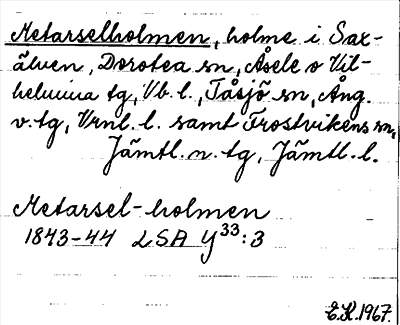 Metarselholmen, holme i Sax-
älven, Dorotea sn, Åsele o Vil-
helmina tg, Vb. l., Tåsjö sn, Ång.
v. tg, Vrnl. l. samt Frostvikens sn,
Jämtl. n. tg, Jämtl. l.
Metarsel-holmen
1843-44 LSA Y33:3
E.K. 1967.